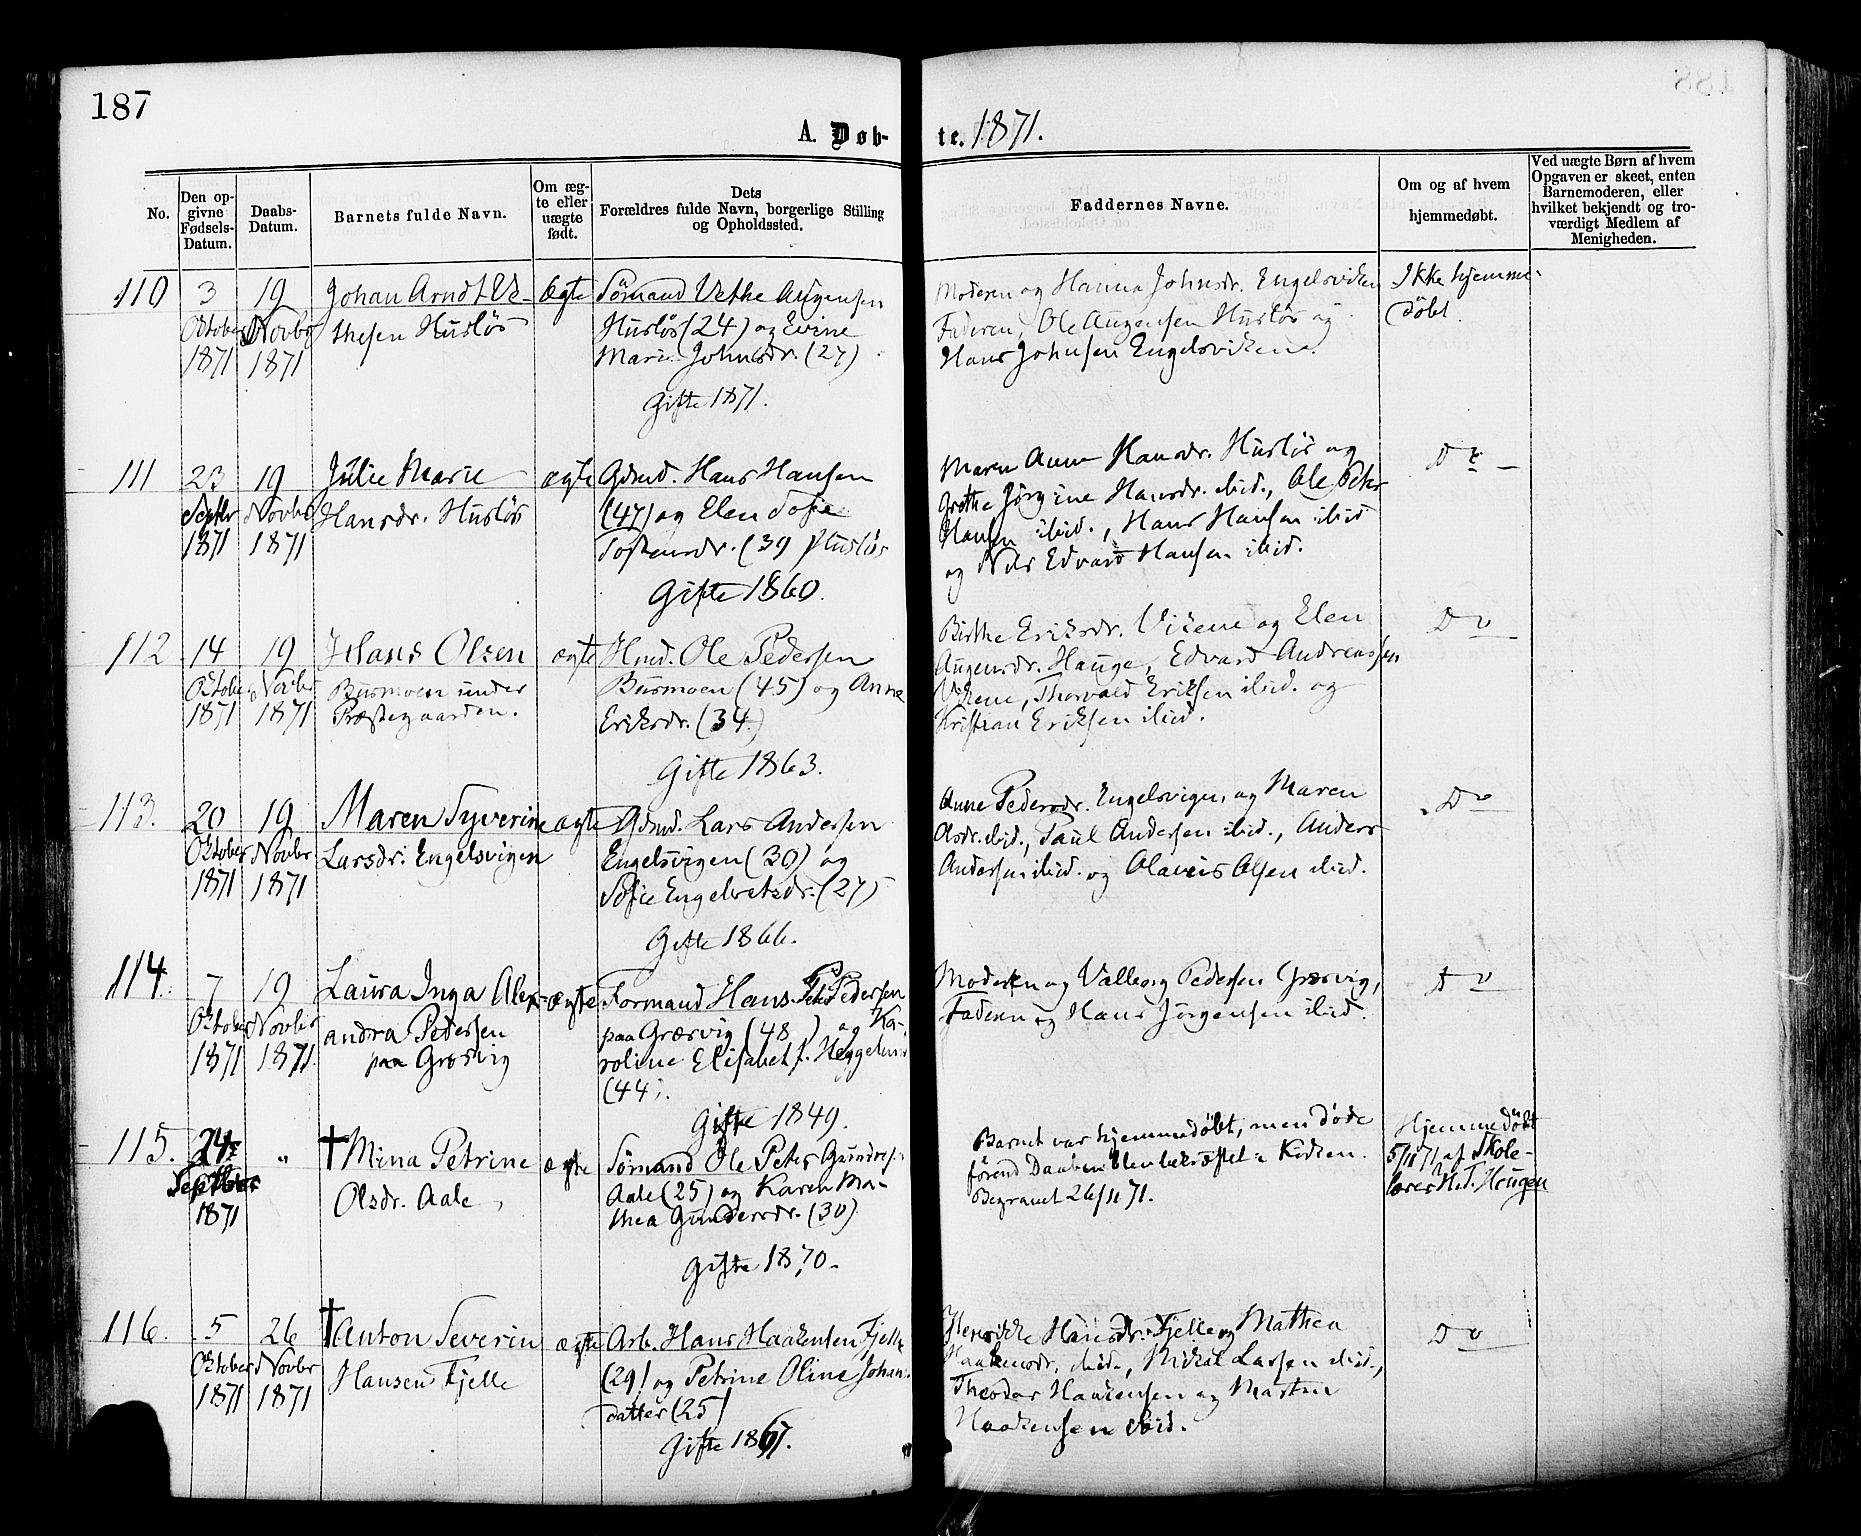 187
A. Døb- te. 1871.
No.
Den op-
givne
Fødsels-
Datum.
Daabs-
Datum.
Barnets fulde Navn.
Om æg-
te eller
uægte
født.
Dets
Forældres fulde Navn, borgerlige Stilling
og Opholdssted.
Faddernes Navne.
Om og af hvem
hjemmedøbt.
Ved uægte Børn af hvem
Opgaven er skeet, enten
Barnemoderen, eller
hvilket bekjendt og tro-
værdigt Medlem af
Menigheden.
110
3
Oktober
1871
19
Novbr
1871
Johan Arndt Ve-
thesen Husløs
Ægte
Sømand Vethe Augensen
Husløs (24) og Evine
Marie Johnsdr. (27)
Gifte 1871.
Moderen og Hanna Johnsdr. Engelsviken
Faderen, Ole Augensen Husløs og
Hans Johnsen Engelsvikene.
Ikke hjemme-
døbt.
111
23
Septbr
1871
19
Novbr
1871
Julie Marie
Hansdr. Husløs
ægte
Gdmd. Hans Hansen
(47) og Elen Sofie
Tostensdr. (39) Husløs
Gifte 1860.
Maren Anne Hansdr. Husløs og
Grethe Jørgine Hansdr. ibid., Ole Peter
Hansen ibid., Hans Hansen ibid
og Nils Edvard Hansen ibid.
Do
112
14
Oktober
1871
19
Novbr
1871
Johans Olsen
Busmoen under
Præstegaarden.
ægte
Hmd. Ole Pedersen
Busmoen (45) og Anne
Eriksdr. (34)
Gifte 1863.
Birthe Eriksdr. Vikene og Elen
Augensdr. Hauge, Edvard Andreassen
Vikene, Thorvald Eriksen ibid. og
Kristian Eriksen ibid.
Do
113.
20
Oktober
1871
19
Novbr
1871
Maren Syverine
Larsdr. Engelsvigen
ægte
Gdmd. Lars Andersen
Engelsvigen (30) og
Sofie Engebretsdr. (27)
Gifte 1866.
Anne Pedersdr. Engelsvigen, og Maren
Olsdr. ibid., Paul Andersen ibid., Anders
Andersen ibid. og Olavus Olsen ibid.
Do
114.
7
Oktober
1871
19
Novbr
1871.
Laura Inga Alex-
andra Pedersen
paa Græsvig
ægte
Formand Hans Peter Pedersen
paa Græsvig (48) og Ka-
roline Elisabet f. Heggelund
(44).
Gifte 1849.
Moderen og Valborg Pedersen Græsvig,
Faderen og Hans Jørgensen ibid.
Do
115.
24
Septbr
1871
"
† Mina Petrine
Olsdr. Aale
ægte
Sømand Ole Peter
Aale (25) og Karen Ma-
thea Gundersdr. (30)
Gifte 1870.
Barnet var hjemmedøbt, men døde
førend Daaben blev bekræftet i Kirken.
Begravet 26/11 71.
Hjemmedøbt
5/11 71 af Skole-
lærer Haugen
116.
5
Oktober
1871
26
Novbr
1871
† Anton Severin
Hansen Fjelle
ægte
Arb. Hans Haakensen Fjelle
(29) og Petrine Oline Johan-
datter (25)
Gifte 1867.
Henrikke Hansdr. Fjelle og Mathea
Haakensdr. ibid., Mikal Larsen ibid.,
Theodor Haakensen og Martin
Haakensen ibid.
Do